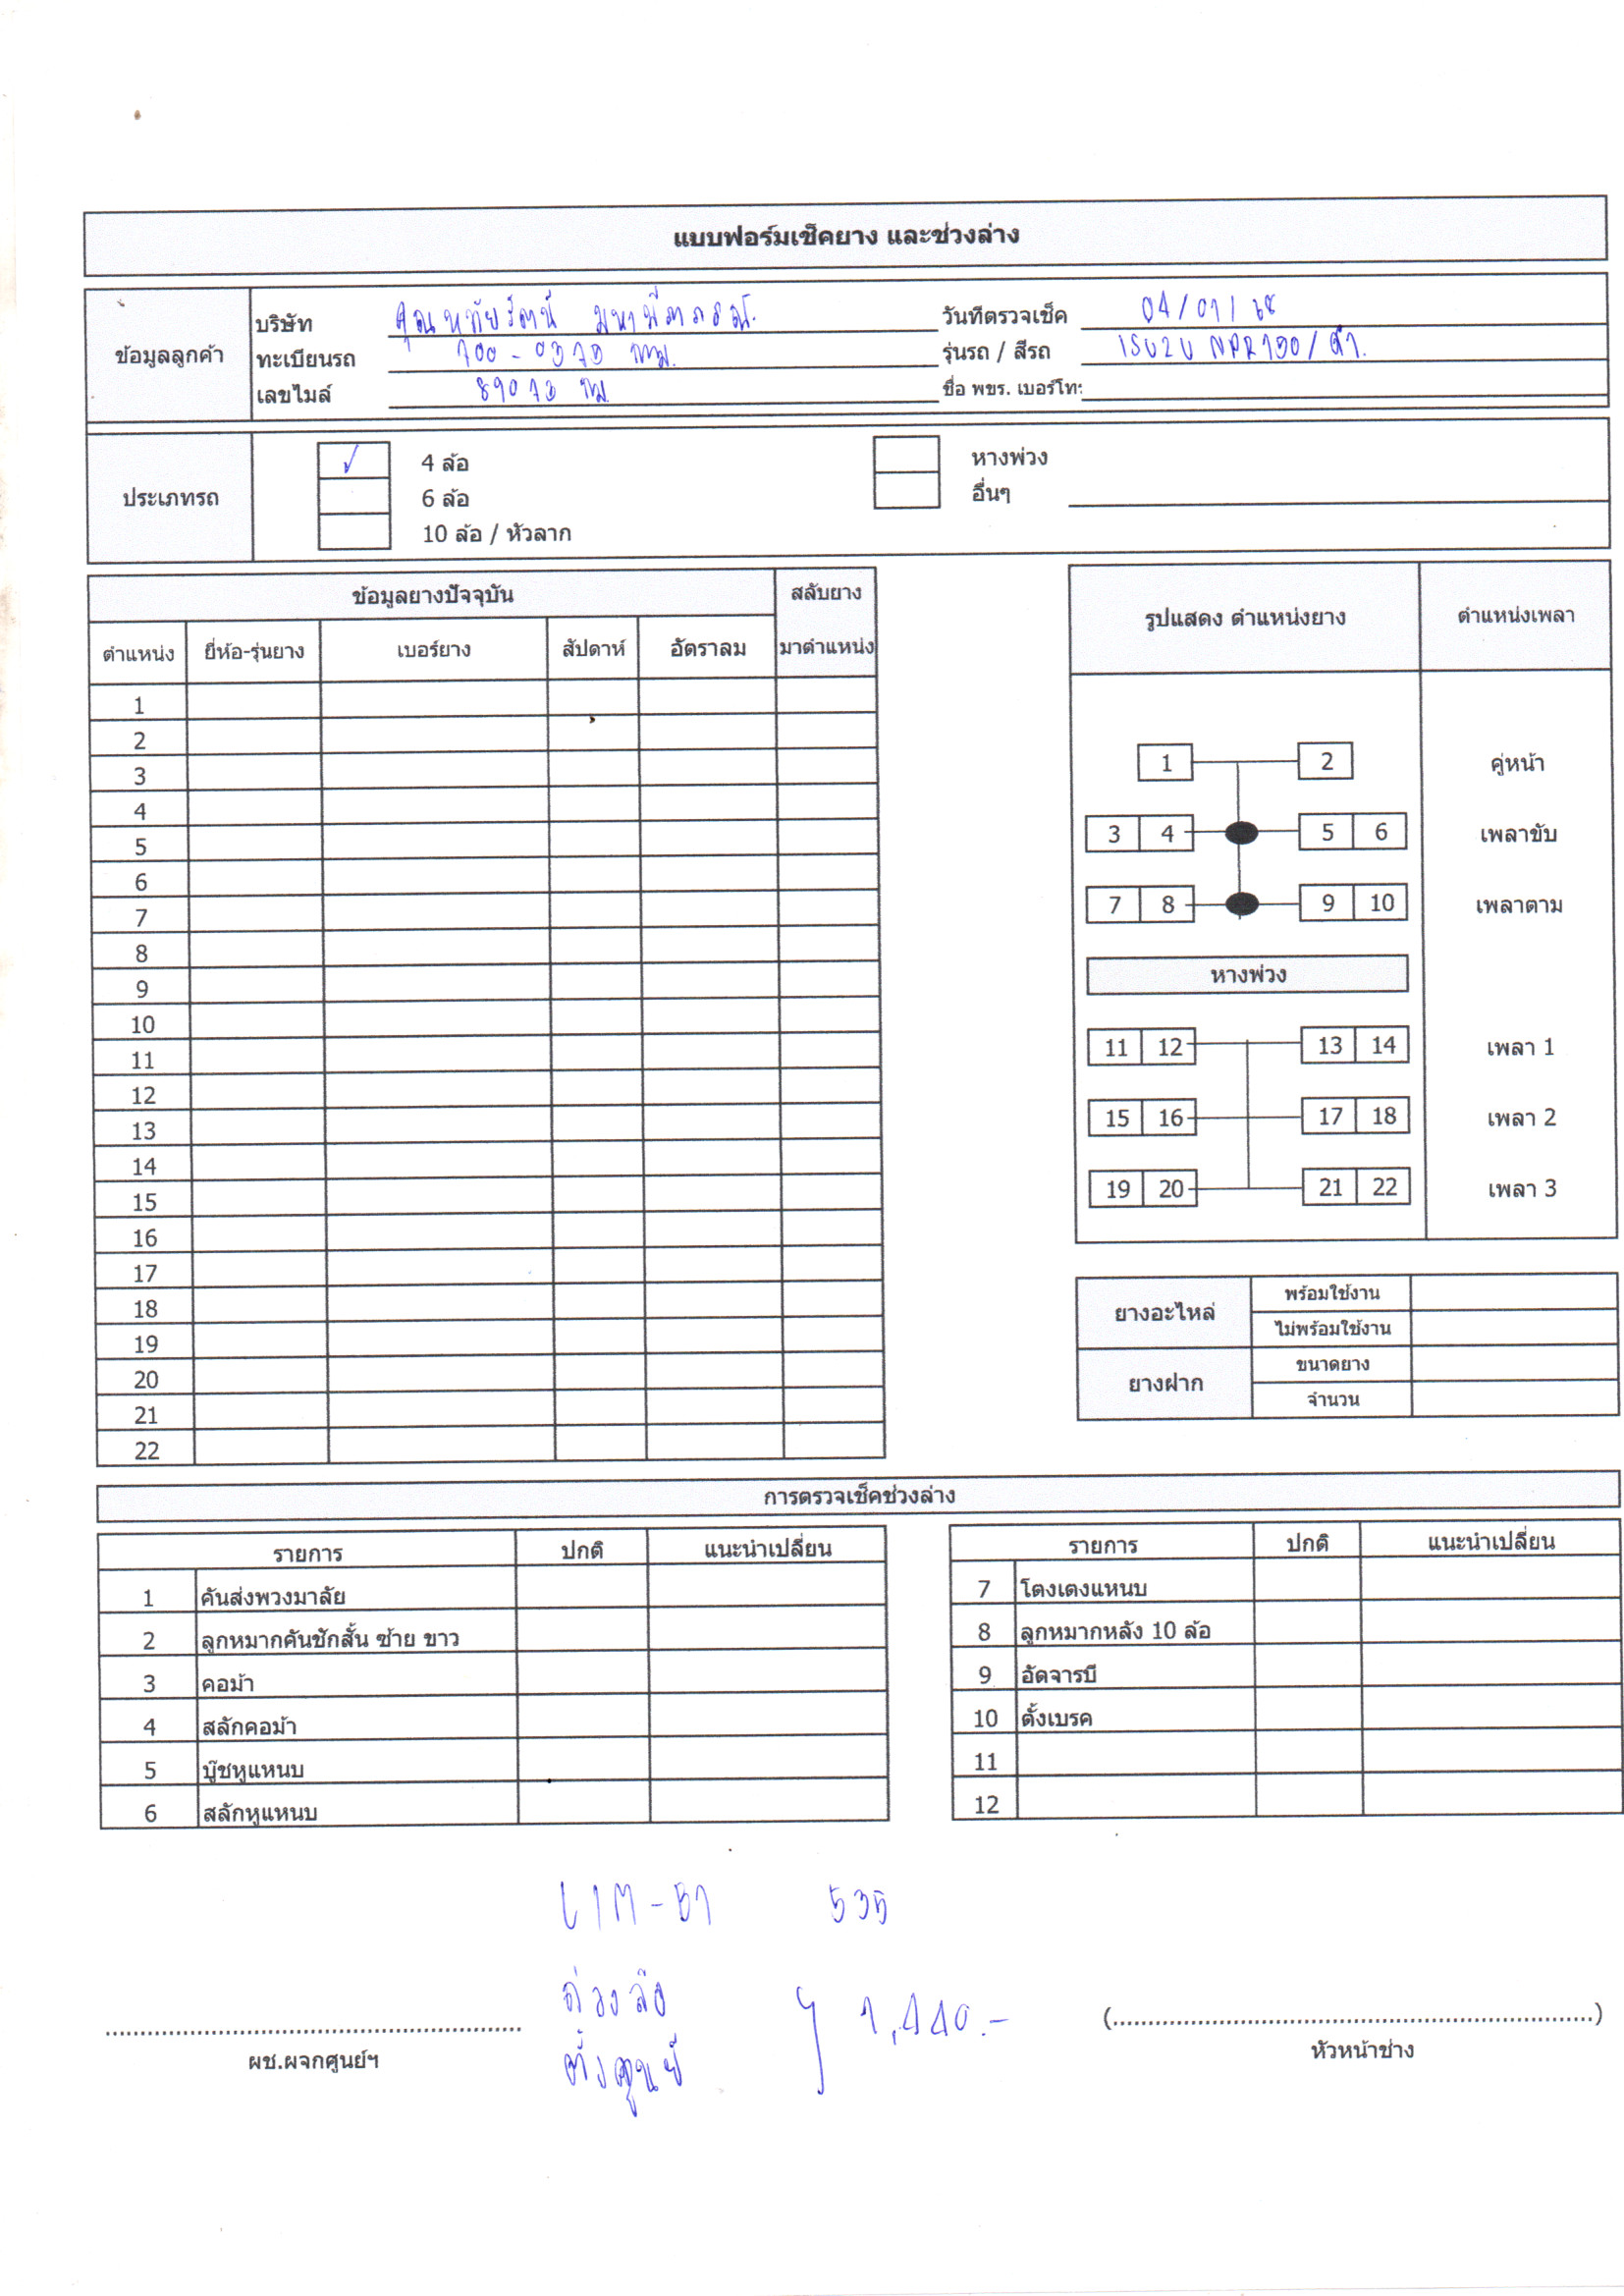 แบบฟอร์มเช็คยาง และช่วงล่าง
ข้อมูลลูกค้า
บริษัท คุณหทัยรัตน์ วันที่ตรวจเช็ค 04/01/68
ทะเบียนรถ 700-0373 กทม. รุ่นรถ / สีรถ ISUZU NPR150/ดำ.
เลขไมล์ กม. ชื่อ พขร. เบอร์โทร
ประเภทรถ
4 ล้อ หางพ่วง
6 ล้อ อื่นๆ
10 ล้อ / หัวลาก
ข้อมูลยางปัจจุบัน สลับยาง
ตำแหน่ง ยี่ห้อ-รุ่นยาง เบอร์ยาง สัปดาห์ อัตราลม มาตำแหน่ง
1
2
3
4
5
6
7
8
9
10
11
12
13
14
15
16
17
18
19
20
21
22
รูปแสดง ตำแหน่งยาง ตำแหน่งเพลา
1 2 คู่หน้า
3 4 5 6 เพลาขับ
7 8 9 10 เพลาตาม
หางพ่วง
11 12 13 14 เพลา 1
15 16 17 18 เพลา 2
19 20 21 22 เพลา 3
ยางอะไหล่ พร้อมใช้งาน
ไม่พร้อมใช้งาน
ยางฝาก ขนาดยาง
จำนวน
การตรวจเช็คช่วงล่าง
รายการ ปกติ แนะนำเปลี่ยน
1 คันส่งพวงมาลัย
2 ลูกหมากคันชักสั้น ซ้าย ขาว
3 คอม้า
4 สลักคอม้า
5 บู๊ชหูแหนบ
6 สลักหูแหนบ
รายการ ปกติ แนะนำเปลี่ยน
7 โตงเตงแหนบ
8 ลูกหมากหลัง 10 ล้อ
9 อัดจารบี
10 ตั้งเบรค
11
12
535
ถ่วงล้อ
ตั้งศูนย์ 1,440.-
ผช.ผจกศูนย์ฯ
(..........)
หัวหน้าช่าง